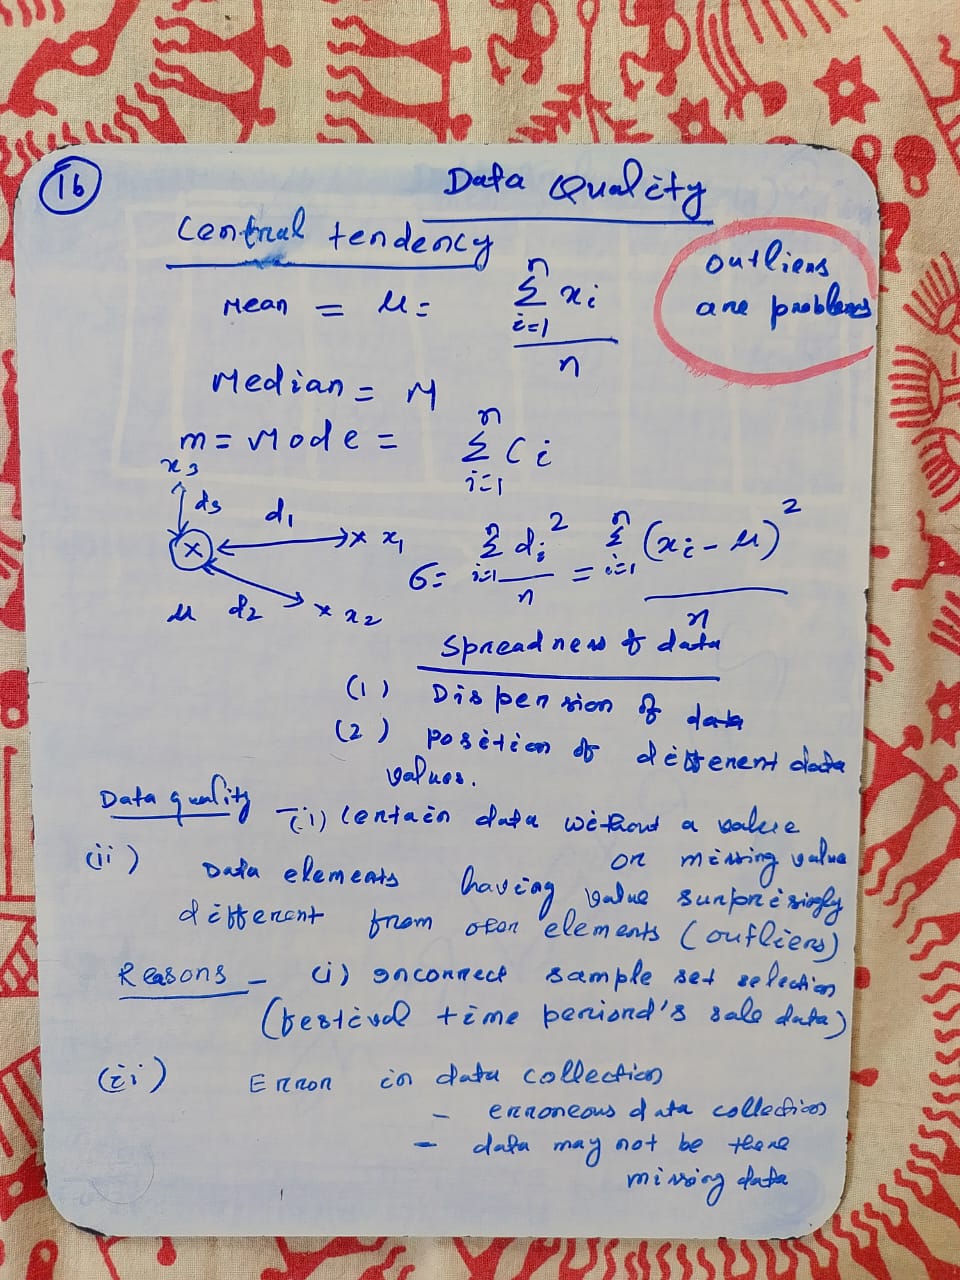 16
Data Quality
Central tendency
outliers
are problems
Mean = μ = n Σ i=1 xi / n
Median = M
m = Mode = n Σ i=1 Ci
x3
d3 d1 x x1
x
μ d2 x x2
6 = n Σ i=1 di² / n = n Σ i=1 (xi - μ)² / n
Spreadness of data
(1) Dispersion of data
(2) position of different data
values.
Data quality - (i) Certain data without a value
or missing value
(ii) Data elements having value surprisingly
different from other elements (outliers)
Reasons - (i) Inconnect sample set selection
(festival time periond's sale data)
(ii) Error in data collection
- erroneous data collection
- data may not be there
missing data